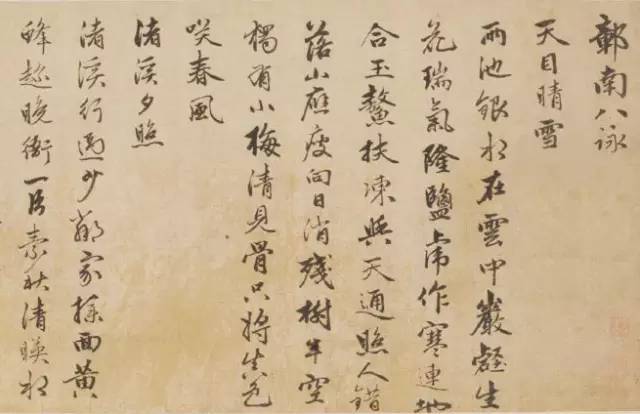 鄣南八詠
天目晴雪
兩池銀水在雲中巖壑生
花瑞氣隆鹽虎作寒連地
合玉鰲扶凍與天通照人錯
落山應瘦向日消殘樹半空
獨有小梅清見骨只將色
咲春風
渚溪夕照
渚溪行過少鄰家撲面黃
蜂趁晚衙一片素秋清暎水